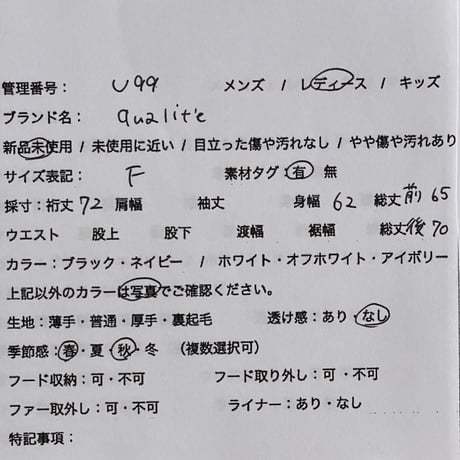 管理番号： U99 メンズ / レディース / キッズ
ブランド名： qualite
新品未使用 / 未使用に近い / 目立った傷や汚れなし / やや傷や汚れあり
サイズ表記： F 素材タグ：有 無
採寸：裄丈72 肩幅 袖丈 身幅 62 総丈前65
ウエスト 股上 股下 渡幅 裾幅 総丈後70
カラー：ブラック・ネイビー / ホワイト・オフホワイト・アイボリー
上記以外のカラーは写真でご確認ください。
生地：薄手・普通・厚手・裏起毛 透け感：あり・なし
季節感：春・夏・秋・冬 （複数選択可）
フード収納：可・不可 フード取り外し：可・不可
ファー取外し：可・不可 ライナー：あり・なし
特記事項：